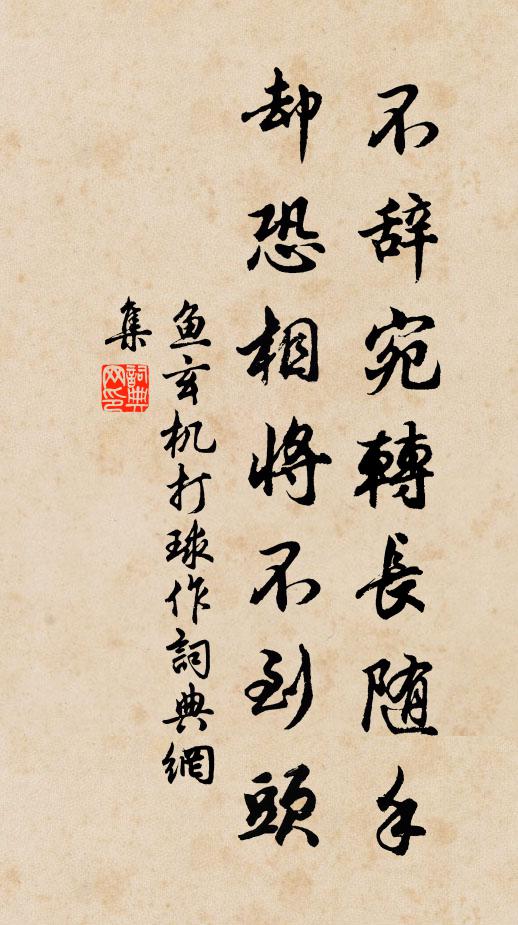 不辞宛轉長随手
却恐相將不到頭
鱼玄机打球作詞典網
集
詞典
网印